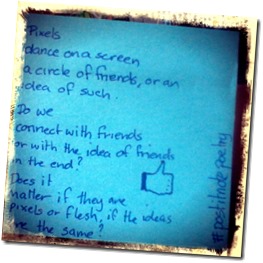 Pixels
dance on a screen
a circle of friends, or an
idea of such.
Do we
connect with friends
or with the idea of friends
in the end?
Does it
matter if they are
pixels or flesh, if the ideas
are the same?
#postitnote poetry